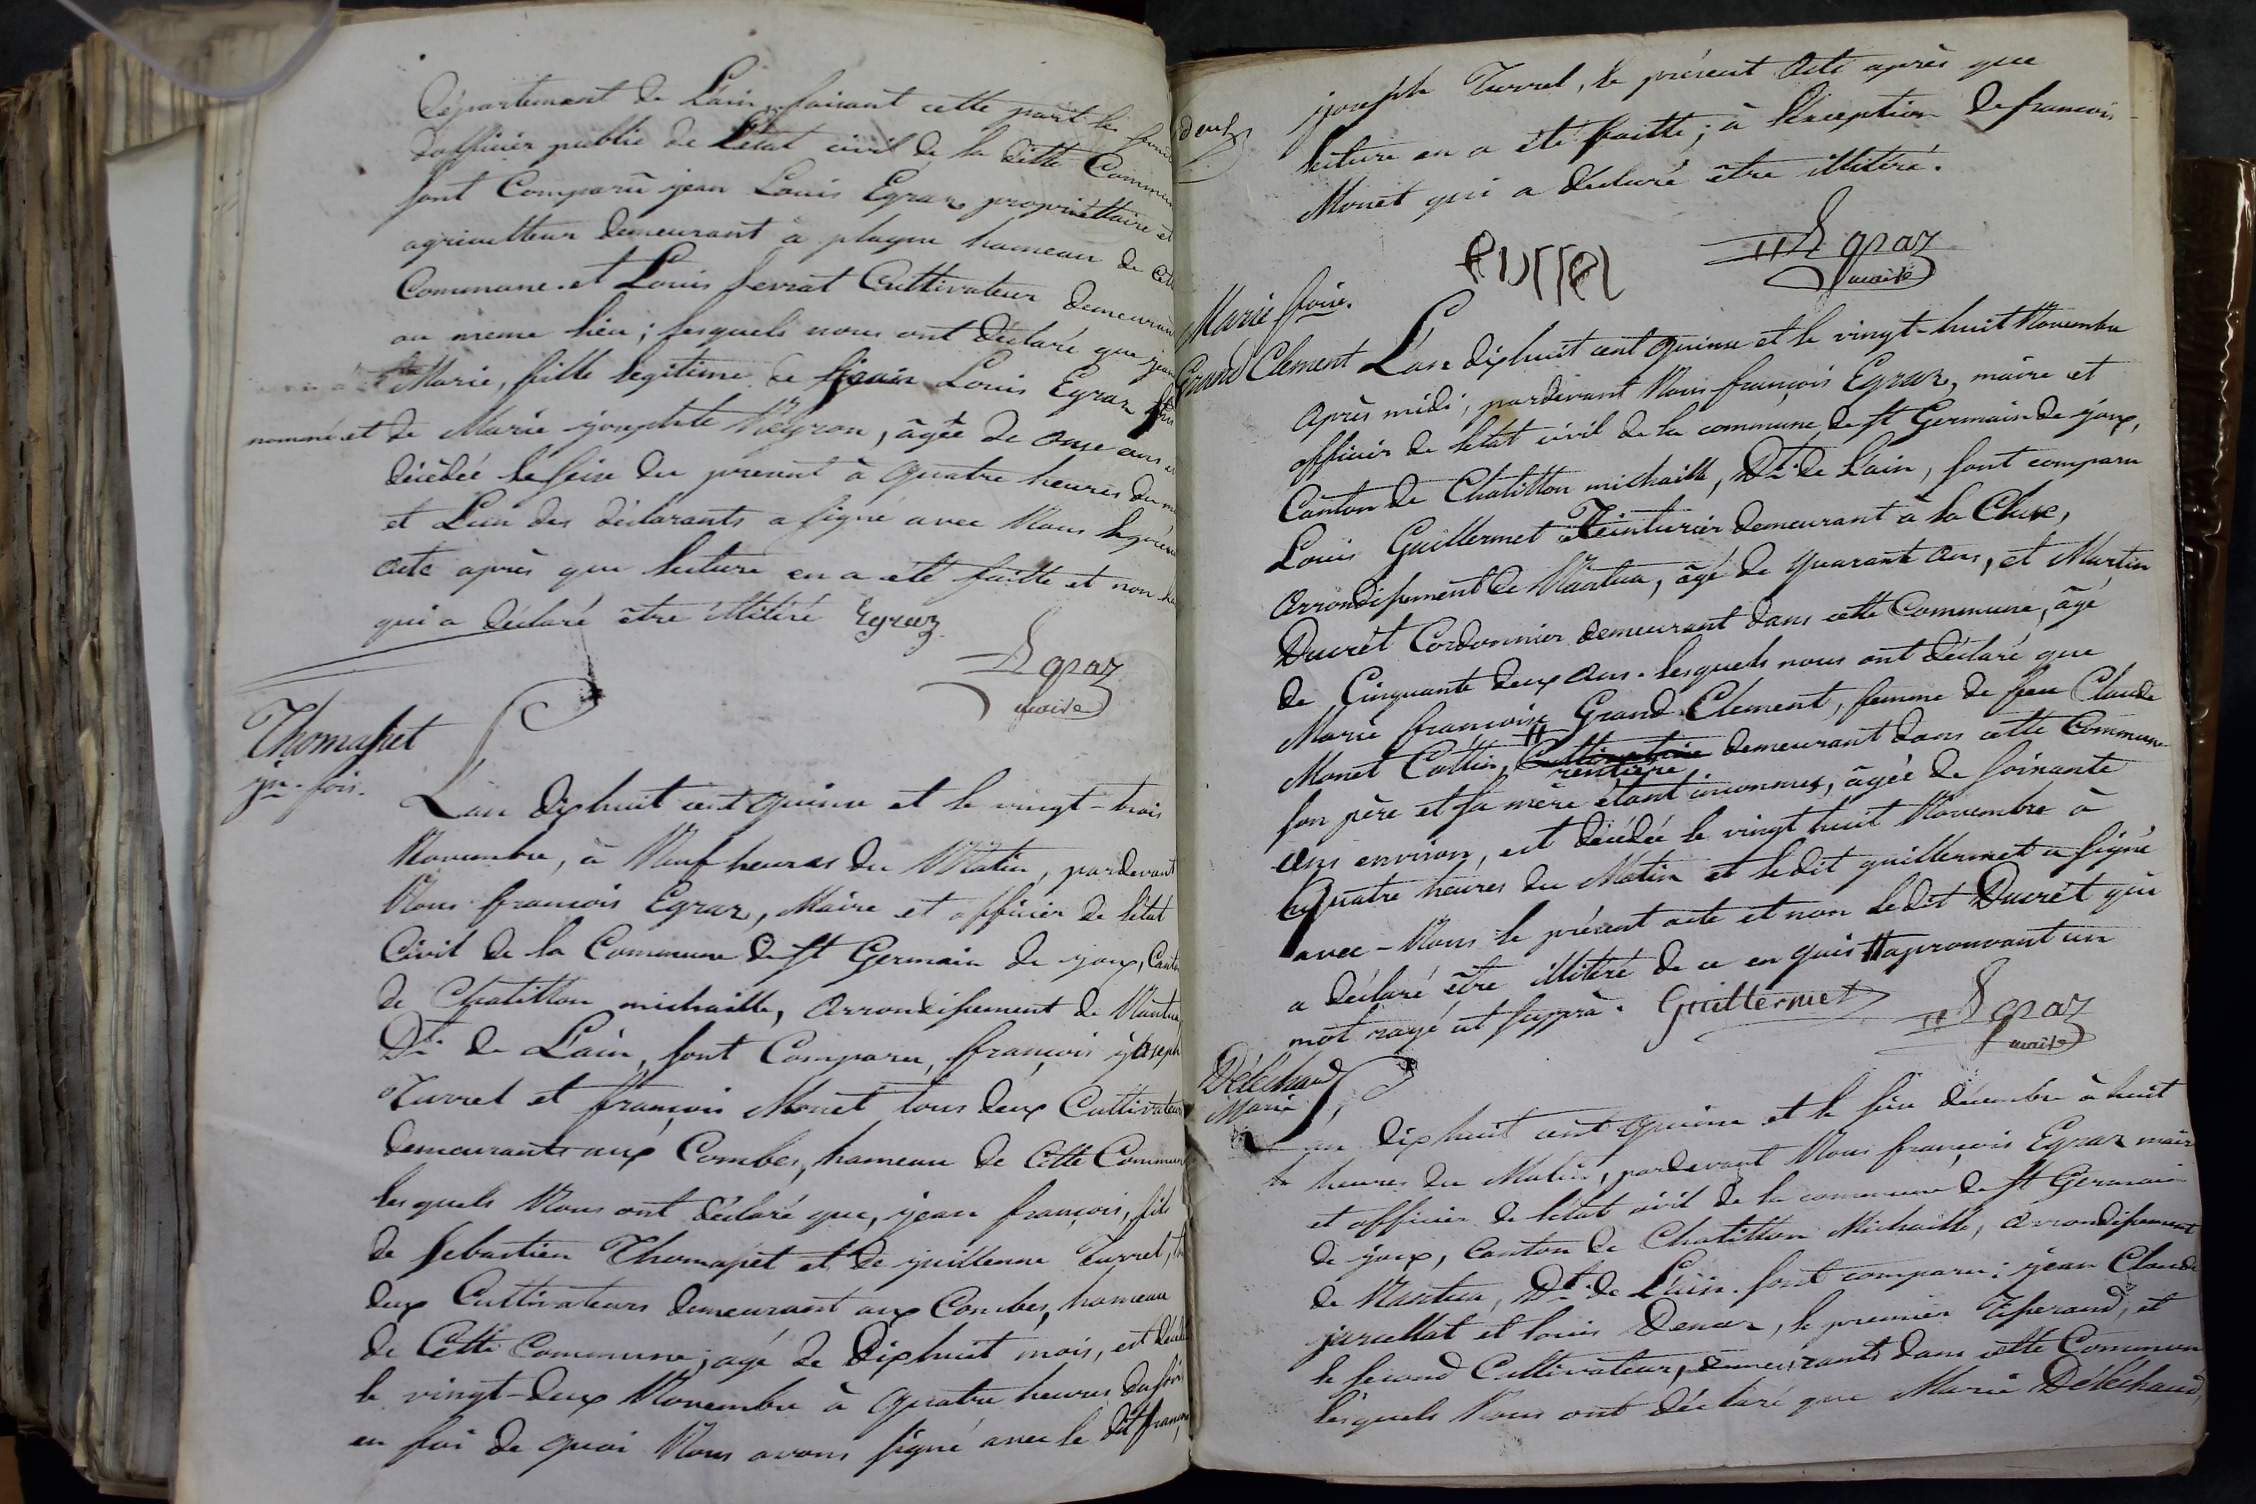 Département de L'ain, faisant cette part les
d'officier public de L'état civil de la ditte Commune
sont Comparû jean Louis Egraz propriettaire et
agriculteur demeurant à plagne hameau de cette
Commune. et Louis Serrat Cultivateur demeurant
au meme lieu; lesquels nous ont déclaré que jean
Marie, fille legitime de Louis Egraz
nommé et de Marie josephte Neyron, âgée de onze ans
décédée le seize du present à quatre heures du
et L'un des déclarants a signé avec Nous le présent
acte après que lecture en a été faitte et non
qui a déclaré être illitéré Egraz
Egraz
maire
Thomasset
jn. fois.
L'an dixhuit cent quinze et le vingt-trois
Novembre, à Neuf heures du Matin, pardevant
Nous françois Egraz, Maire et officier de letat
Civil de la Commune de St Germain de joux, Canton
de Chatillon michaille, arrondissement de Nantua
Dt. de L'ain, sont Comparu, françois joseph
Turrel et françois Monet tous deux Cultivateurs
demeurants aux Combes, hameau de Cette Commune
lesquels Nous ont déclaré que, jean françois, fils
de Sebastien Thomasset et de guillerme Turrel,
deux Cultivateurs demeurant aux Combes, hameau
de Cette Commune; agé de Dixhuit mois, est décédé
le vingt-deux Novembre à quatre heures du soir
en foi de quoi Nous avons signé avec le dit françois
deux
joseph Turrel, le présent acte après que
lecture en a été faitte; à l'éxception de francois
Monet qui a déclaré être illitéré.
Egraz
maire
Marie foise.
Grand Clement L'an dixhuit cent quinze et le vingt-huit Novembre
Après midi, pardevant Nous françois Egraz, maire et
officier de letat civil de la commune de St Germain de joux,
Canton de Chatillon michaille, Dt. de L'ain, sont comparu
Louis Guillermet Teinturier demeurant à la Cluse,
arrondissement de Nantua, âgé de quarante ans, et Martin
Ducrét Cordonnier demeurant dans cette Commune, âgé
de Cinquante deux ans. lesquels nous ont déclaré que
Marie francoise Grand-Clement, femme de feu Claude
Monet Cattin, Cultivatrice demeurant dans cette Commune
rentière
son père et sa mère étant inconnus, âgée de soixante
ans environ, est décédée le vingt huit Novembre à
Quatre heures du Matin et ledit guillermet a signé
avec-Nous le présent acte et non ledit Ducrét qui
a déclaré être illitéré de ce enquis aprouvant un
mot rayé ut suprà. Guillermet
Egraz
maire
Déléchaud
Marie
L'an dixhuit cent quinze et le seize décembre à huit
heures du Matin, pardevant Nous françois Egraz maire
et officier de letat civil de la commune de St Germain
de joux, Canton de Chatillon Michaille, arrondissement
de Nantua, Dt. de L'ain. sont comparu: jean Claude
jarcellat et louis Denar, le premier Tisserand, et
le second Cultivateur, demeurants dans cette Commune
lesquels Nous ont déclaré que Marie Déléchaud,